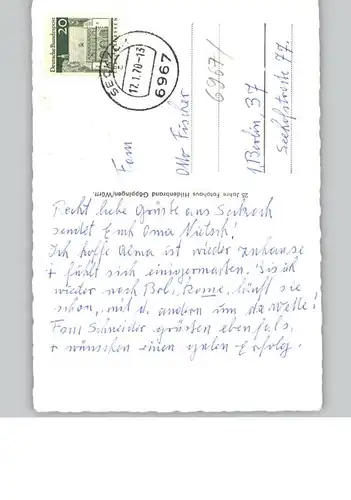 Recht liebe Grüße aus Seckach
sendet Euch Oma Nietsch!
Ich hoffe Alma ist wieder zuhause
+ fühlt sich einigermaßen. Bis ich
wieder nach Brl. komme, läuft sie
schon, mit d. andern um die Wette!
Fam Schneider grüßen ebenfals,
+ wünschen einen guten Erfolg.
Fam
Otto Fischer
1 Berlin, 37
Seehofstrasse 77.
6967/
Deutsche Bundespost
20
SECKACH
17.1.70-13
6967
25 Jahre Fotohaus Hildenbrand Göppingen/Württ.